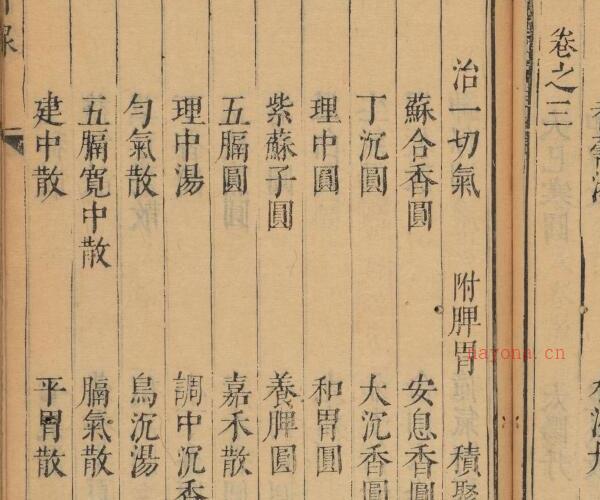 卷之三
治一切氣 附脾胃 積聚
蘇合香圓 安息香圓
丁沉圓 大沉香圓
理中圓 和胃圓
紫蘇子圓 養脾圓
五膈圓 嘉禾散
理中湯 調中沉香
勻氣散 烏沉湯
五膈寬中散 膈氣散
建中散 平胃散
nayona.cn